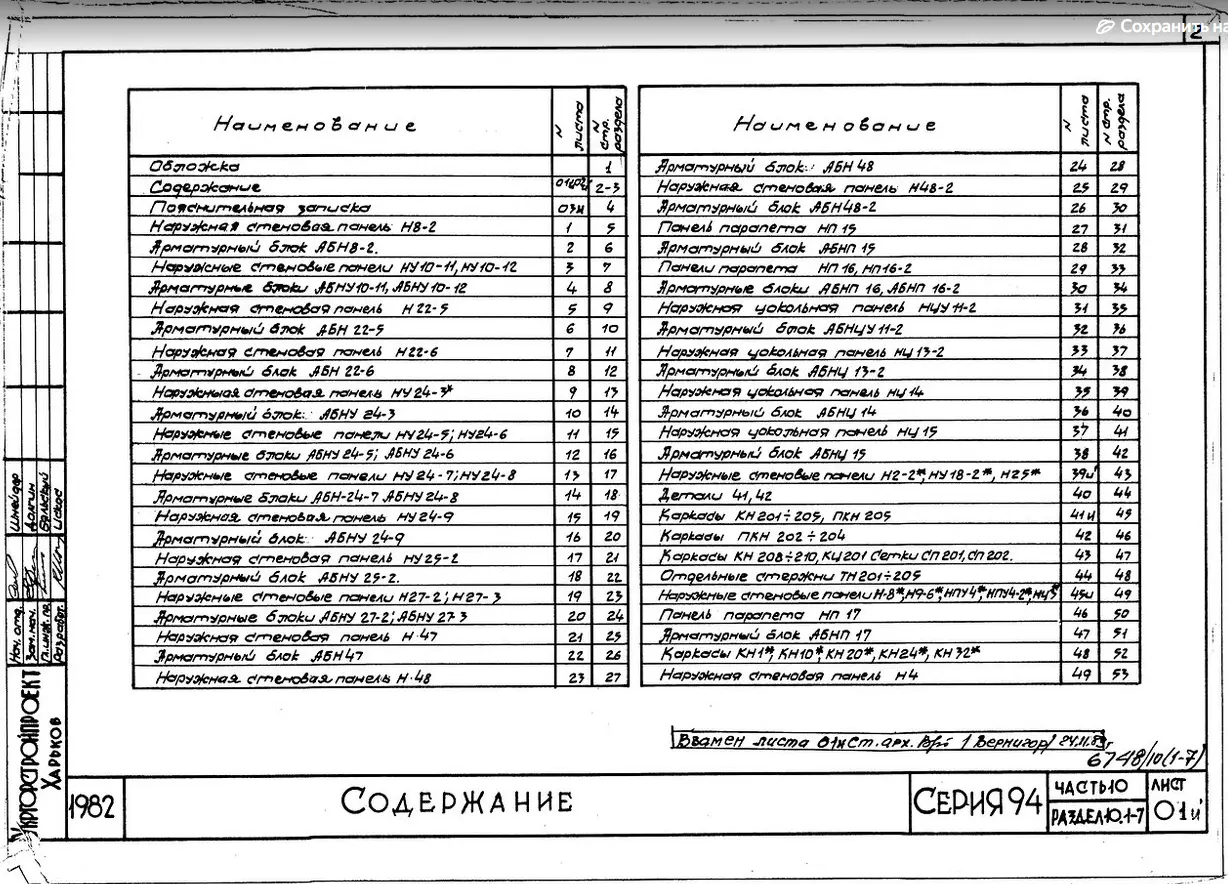 Сохранить на
2
Наименование N листа N стр. раздела
Обложка 1
Содержание 01и,02 2-3
Пояснительная записка 03и 4
Наружная стеновая панель Н8-2 1 5
Арматурный блок АБН8-2. 2 6
Наружные стеновые панели НУ10-11, НУ10-12 3 7
Арматурные блоки АБНУ10-11, АБНУ10-12 4 8
Наружная стеновая панель Н22-5 5 9
Арматурный блок АБН 22-5 6 10
Наружная стеновая панель Н22-6 7 11
Арматурный блок АБН 22-6 8 12
Наружная стеновая панель НУ 24-3* 9 13
Арматурный блок АБНУ 24-3 10 14
Наружные стеновые панели НУ24-5; НУ24-6 11 15
Арматурные блоки АБНУ 24-5; АБНУ 24-6 12 16
Наружные стеновые панели НУ24-7; НУ24-8 13 17
Арматурные блоки АБН-24-7 АБНУ 24-8 14 18
Наружная стеновая панель НУ24-9 15 19
Арматурный блок АБНУ 24-9 16 20
Наружная стеновая панель НУ25-2 17 21
Арматурный блок АБНУ 25-2. 18 22
Наружные стеновые панели Н27-2; Н27-3 19 23
Арматурные блоки АБНУ 27-2; АБНУ 27-3 20 24
Наружная стеновая панель Н-47 21 25
Арматурный блок АБН47 22 26
Наружная стеновая панель Н-48 23 27
Наименование N листа N стр. раздела
Арматурный блок АБН 48 24 28
Наружная стеновая панель Н48-2 25 29
Арматурный блок АБН48-2 26 30
Панель парапета НП 15 27 31
Арматурный блок АБНП 15 28 32
Панели парапета НП 16, НП16-2 29 33
Арматурные блоки АБНП 16, АБНП 16-2 30 34
Наружная цокольная панель НЦУ 11-2 31 35
Арматурный блок АБНЦУ 11-2 32 36
Наружная цокольная панель НЦ 13-2 33 37
Арматурный блок АБНЦ 13-2 34 38
Наружная цокольная панель НЦ 14 35 39
Арматурный блок АБНЦ 14 36 40
Наружная цокольная панель НЦ 15 37 41
Арматурный блок АБНЦ 15 38 42
Наружные стеновые панели Н2-2*, НУ 18-2*, Н25* 39и 43
Детали 41, 42 40 44
Каркасы КН201÷205, ПКН 205 41и 45
Каркасы ПКН 202÷204 42 46
Каркасы КН 208÷210, КЦ201 Сетки СП 201, СП 202. 43 47
Отдельные стержни ТН201÷205 44 48
Наружные стеновые панели Н-8*, Н9-6*, НПУ4*, НПУ4-2*, НЦ3* 45и 49
Панель парапета НП 17 46 50
Арматурный блок АБНП 17 47 51
Каркасы КН1*, КН10*, КН20*, КН24*, КН32* 48 52
Наружная стеновая панель Н4 49 53
Взамен листа 01и Ст. арх. Вернигор 24.11.83г
6748/10(1-7)
Нач. отд. Шнейдер
Зам. нач. Долгин
Гл. инж. пр. Бельский
Разработ.
Укргорстройпроект
Харьков
1982
Содержание
Серия 94
Часть 10
Раздел 10.1-7
Лист
01и